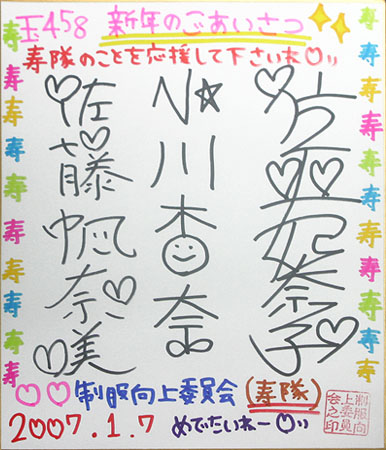 玉458 新年のごあいさつ
寿隊のことを応援して下さいね♡ッ
寿 寿 寿 寿 寿 寿 寿
寿 寿 寿 寿 寿 寿 寿 寿
佐藤帆奈美
川杏奈
亜妃奈子
♡♡制服向上委員会(寿隊)
2007.1.7 めでたいねー♡ッ
制服向上委員会之印